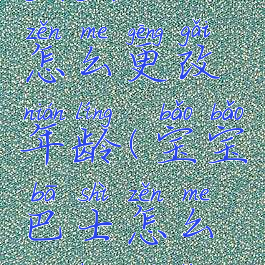 zěn me gēng gǎi
怎么更改
nián líng bǎo bǎo
年龄(宝宝
bā shì zěn me
巴士怎么